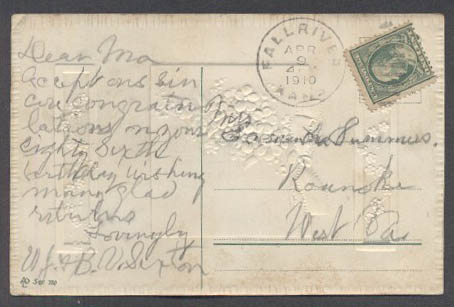 Dear Ma
accept our sin
cere congratu
lations on your
eighty sixth
birthday wishing
many glad
returns
Lovingly
W.J. & B.V. Sexton
FALL RIVER
APR
9
1910
KANS
Mrs
Summers.
Roanoke
West Va